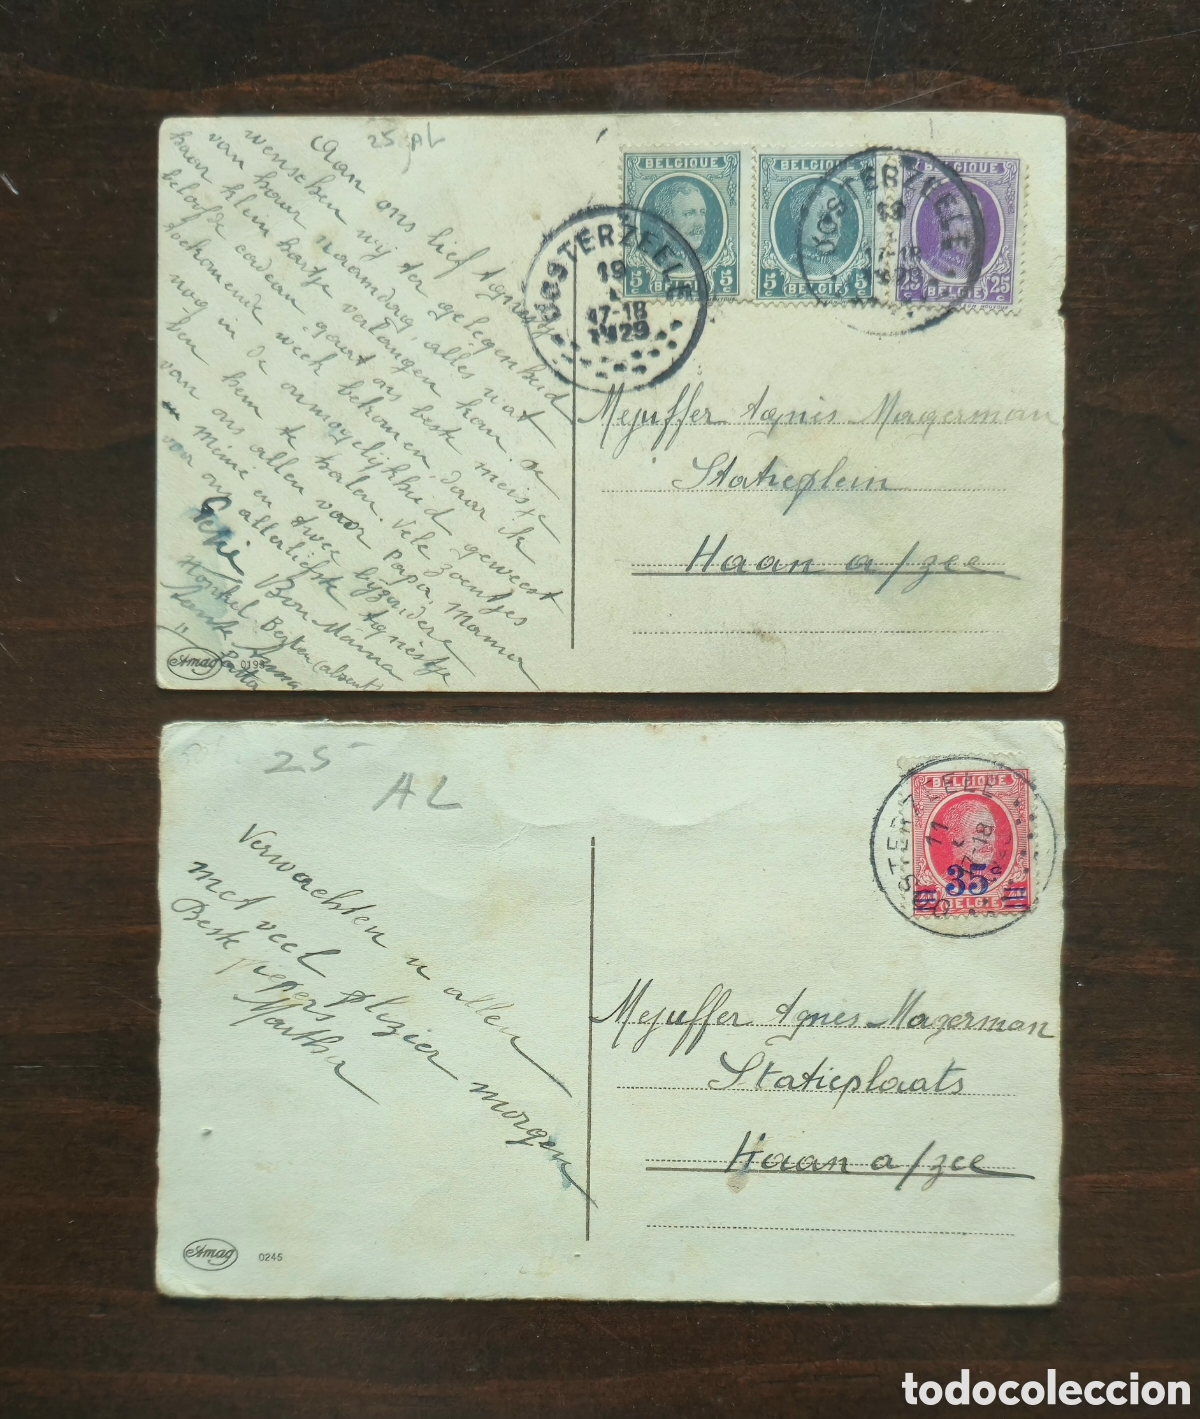 25 AL
Aan ons lief Agnesje
wenschen wij ter gelegenheid
van haar naamdag, alles wat
haar klein hartje verlangen kan. De
beloofde cadeau gaat ons beste meisje
toekomende week bekomen, daar ik
nog in de onmogelijkheid geweest
ben hem te halen. Vele zoentjes
van ons allen voor papa, mama
Mimie en twee bijzondere
voor ons allerliefste Agnestje
Bon Mama
(absent)
Tante Anna
Amag 0195
BELGIQUE
5 5
BELGIË
BELGIQUE
5 5
BELGIË
BELGIQUE
25 25
BELGIË
OOSTERZEELE
19
17-18
1929
OOSTERZEELE
19
17-18
1929
Mejuffer Agnès Magerman
Statieplein
Haan a/zee
25
AL
Verwachten u allen
met veel plezier morgen
Beste
Martha
Amag 0245
BELGIQUE
35
BELGIË
OOSTERZEELE
11
Mejuffer Agnes Magerman
Statieplaats
Haan a/zee
todocoleccion.net